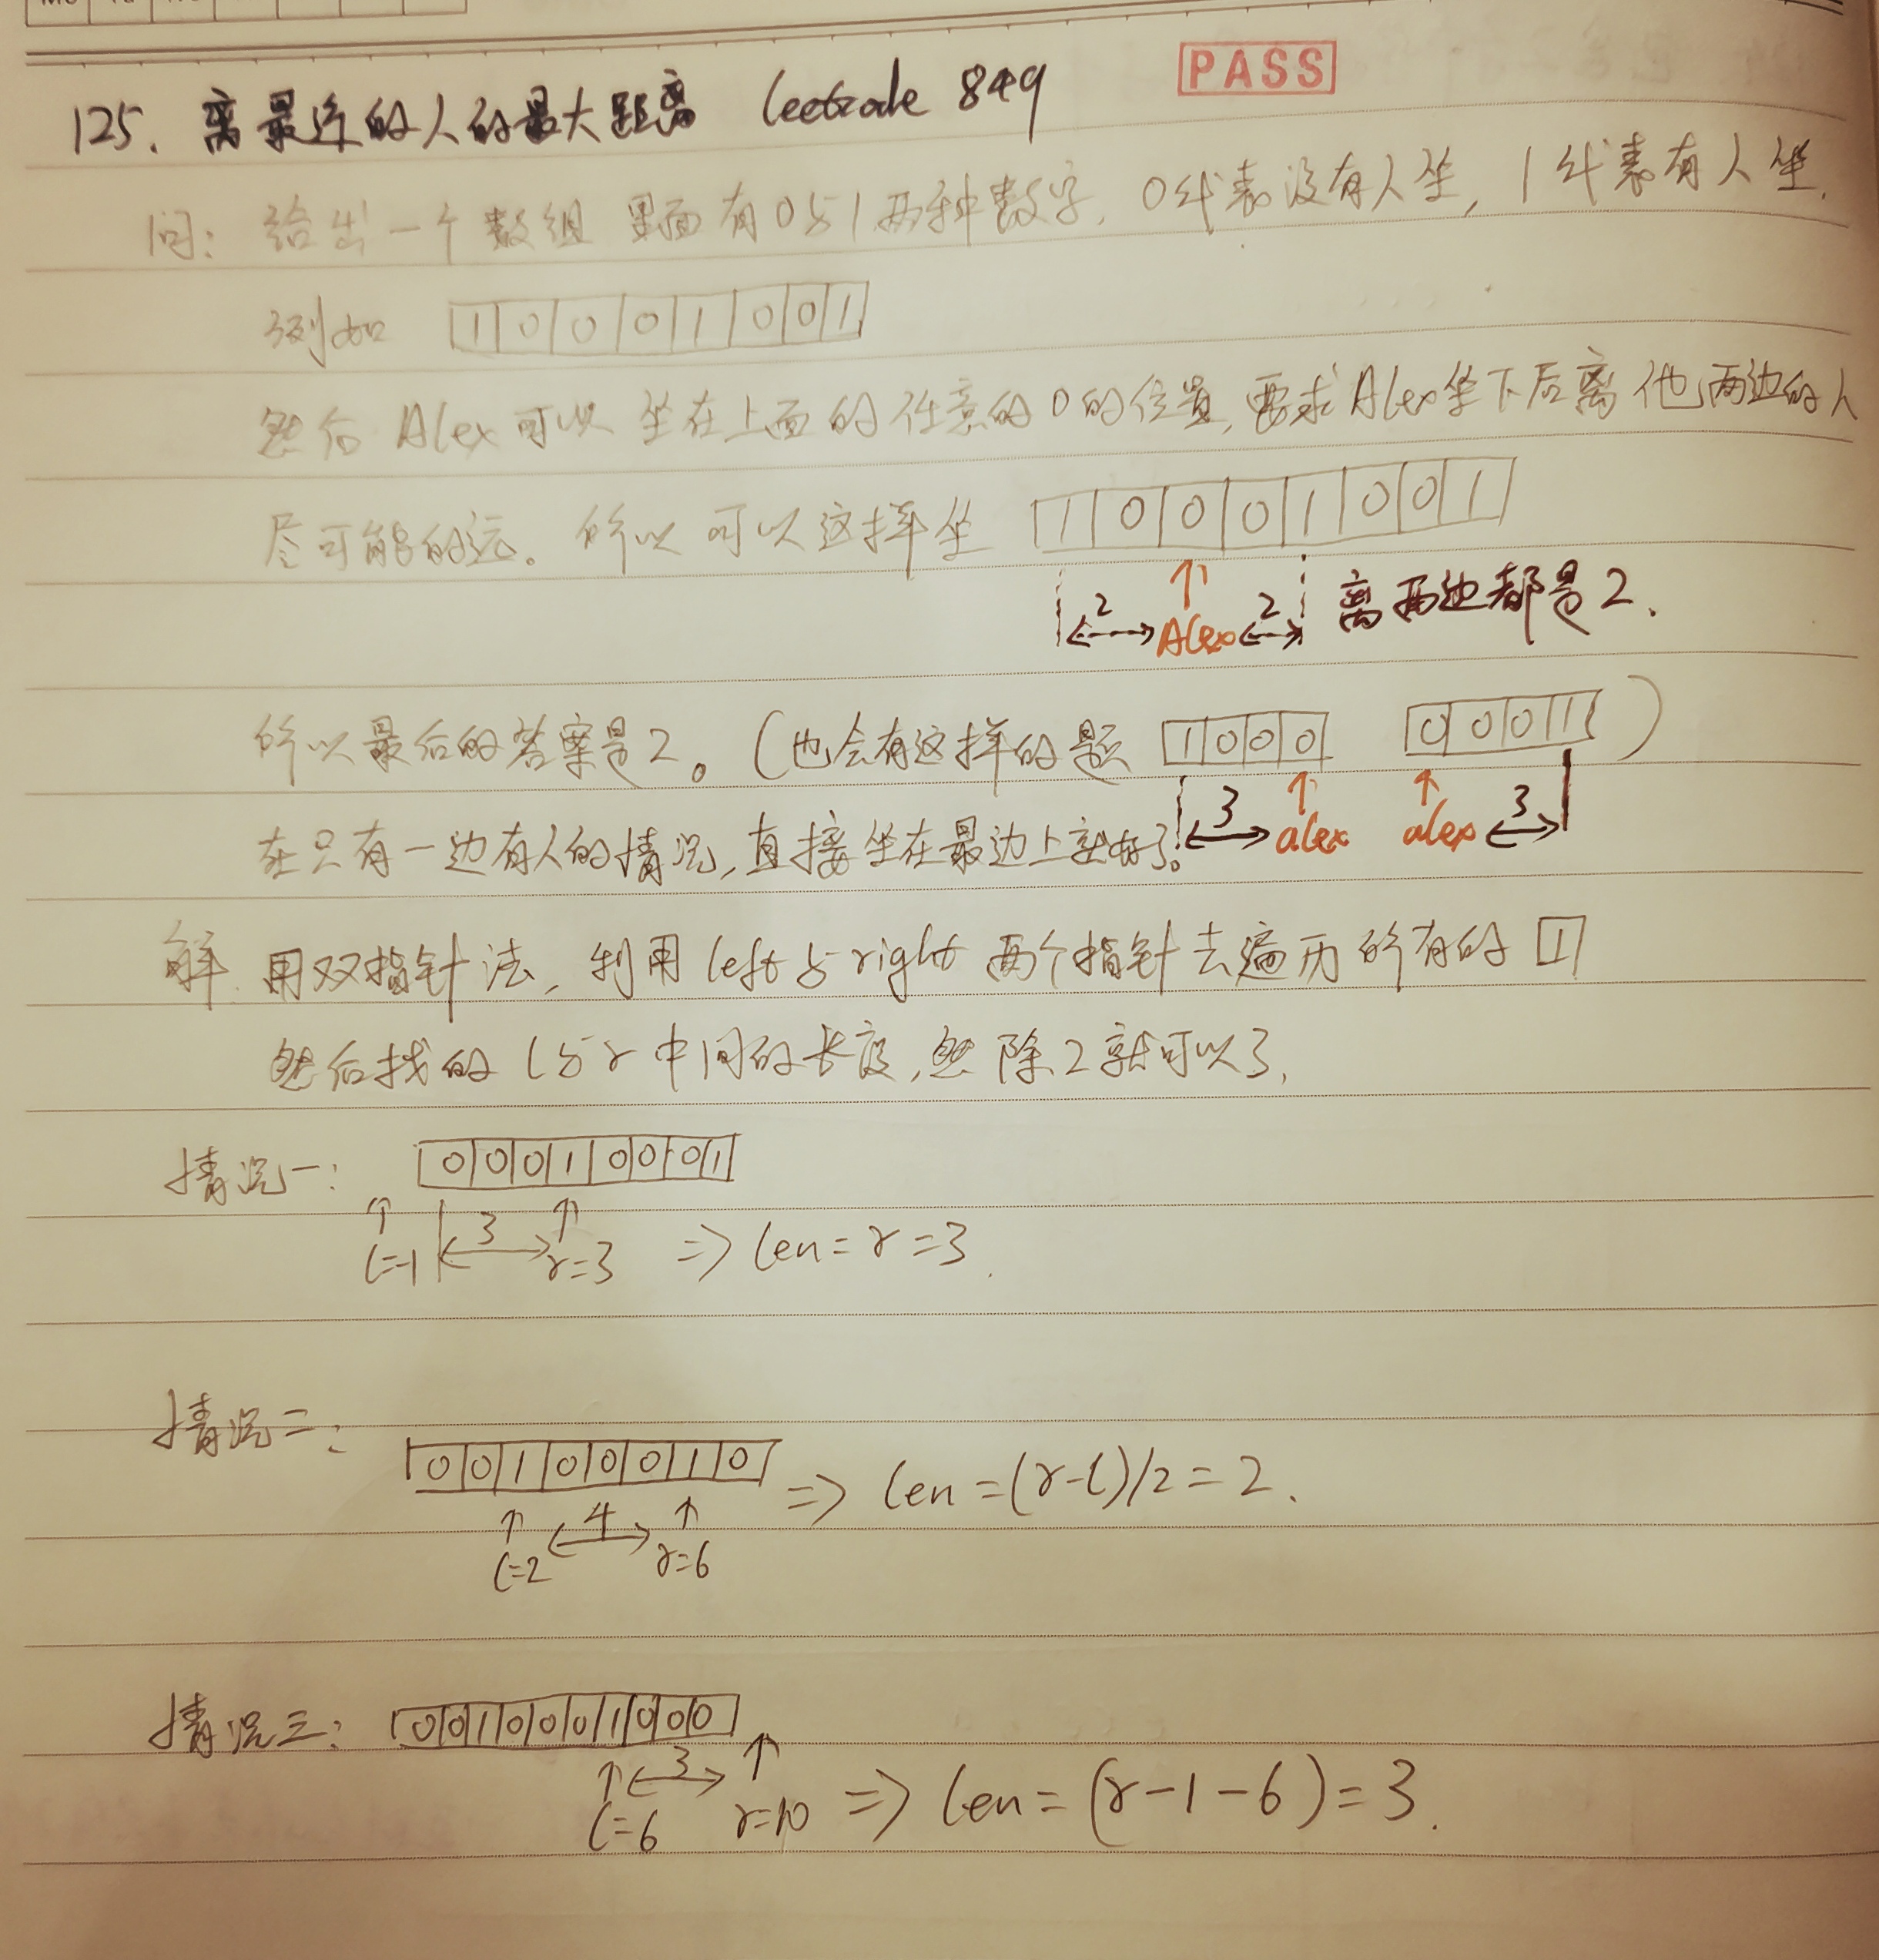 PASS
125. 离最近的人的最大距离 leetcode 849
问: 给出一个数组 里面有0与1两种数字, 0代表没有人坐, 1代表有人坐.
例如 1 0 0 0 1 0 0 1
然后 Alex 可以 坐在上面的任意的0的位置, 要求Alex坐下后离他两边的人
尽可能的远。所以可以这样坐 1 0 0 0 1 0 0 1
2 Alex 2 离两边都是2.
所以最后的答案是2。(也会有这样的题 1 0 0 0 0 0 0 1 )
在只有一边有人的情况, 直接坐在最边上就好了。 3 alex alex 3
解 用双指针法, 利用 left 与 right 两个指针去遍历所有的 1
然后找的 l 与 r 中间的长度, 然 除2就可以了,
情况一: 0 0 0 1 0 0 0 1
l=-1 3 r=3 => len = r = 3.
情况二: 0 0 1 0 0 0 1 0 => len = (r-l)/2 = 2.
l=2 4 r=6
情况三: 0 0 1 0 0 0 1 0 0 0
l=6 3 r=10 => len = (r-1-6) = 3.